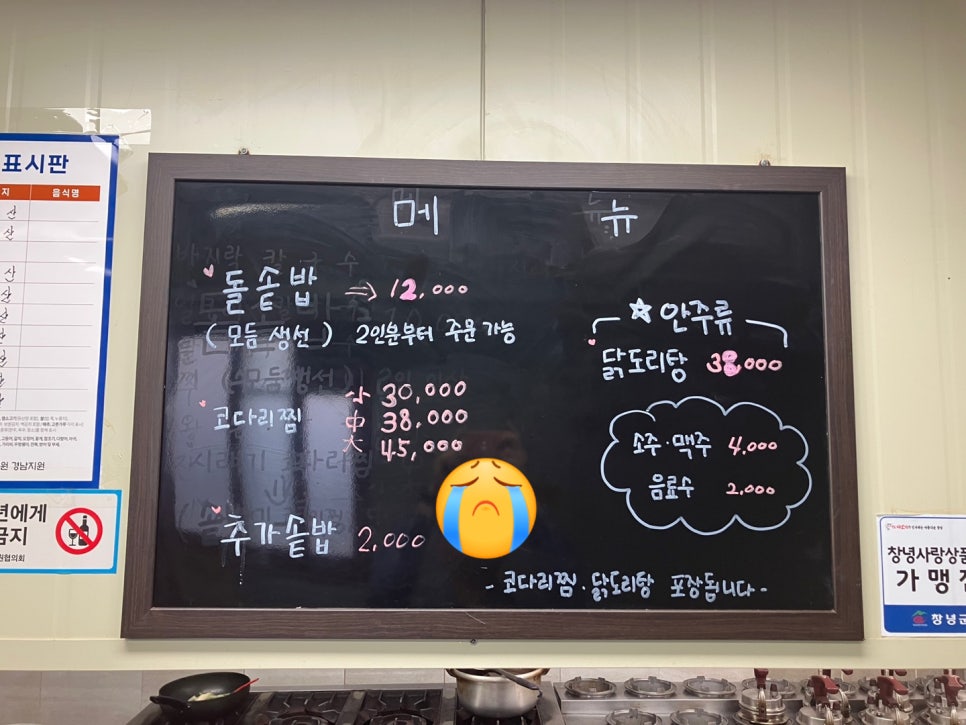 표시판
지 음식명
산
산
산
산
원 경남지원
년에게
금지
원협의회
메 뉴
돌솥밥 ⇒ 12,000
(모듬 생선) 2인분부터 주문 가능
코다리찜
小 30,000
中 38,000
大 45,000
추가솥밥 2,000
☆ 안주류
닭도리탕 38,000
소주·맥주 4,000
음료수 2,000
- 코다리찜·닭도리탕 포장됩니다 -
창녕사랑상품
가맹
창녕군